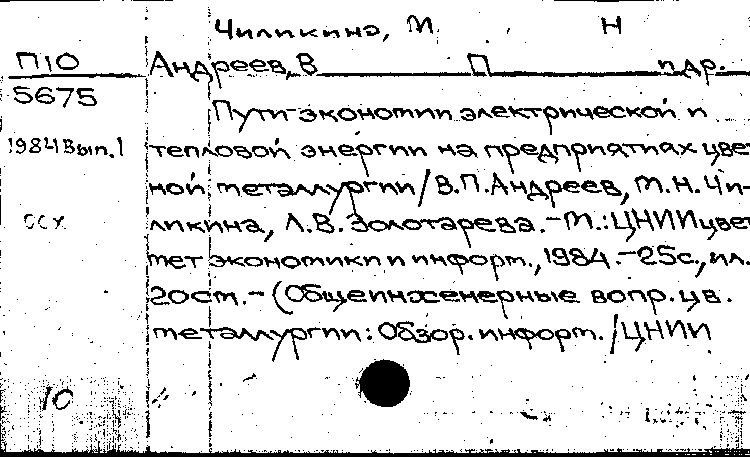 Чиликина, М Н
П10 Андреев, В П и др.
5675
Пути экономии электрической и
1984 Вып. 1 тепловой энергии на предприятиях цвет
ной металлургии/В.П.Андреев, М.Н.Чи-
ликина, Л.В.Золотарева.-М.:ЦНИИцвет
мет экономики и информ., 1984.-25с., ил.
20см.-(Общеинженерные вопр. цв.
металлургии: Обзор. информ./ЦНИИ
10